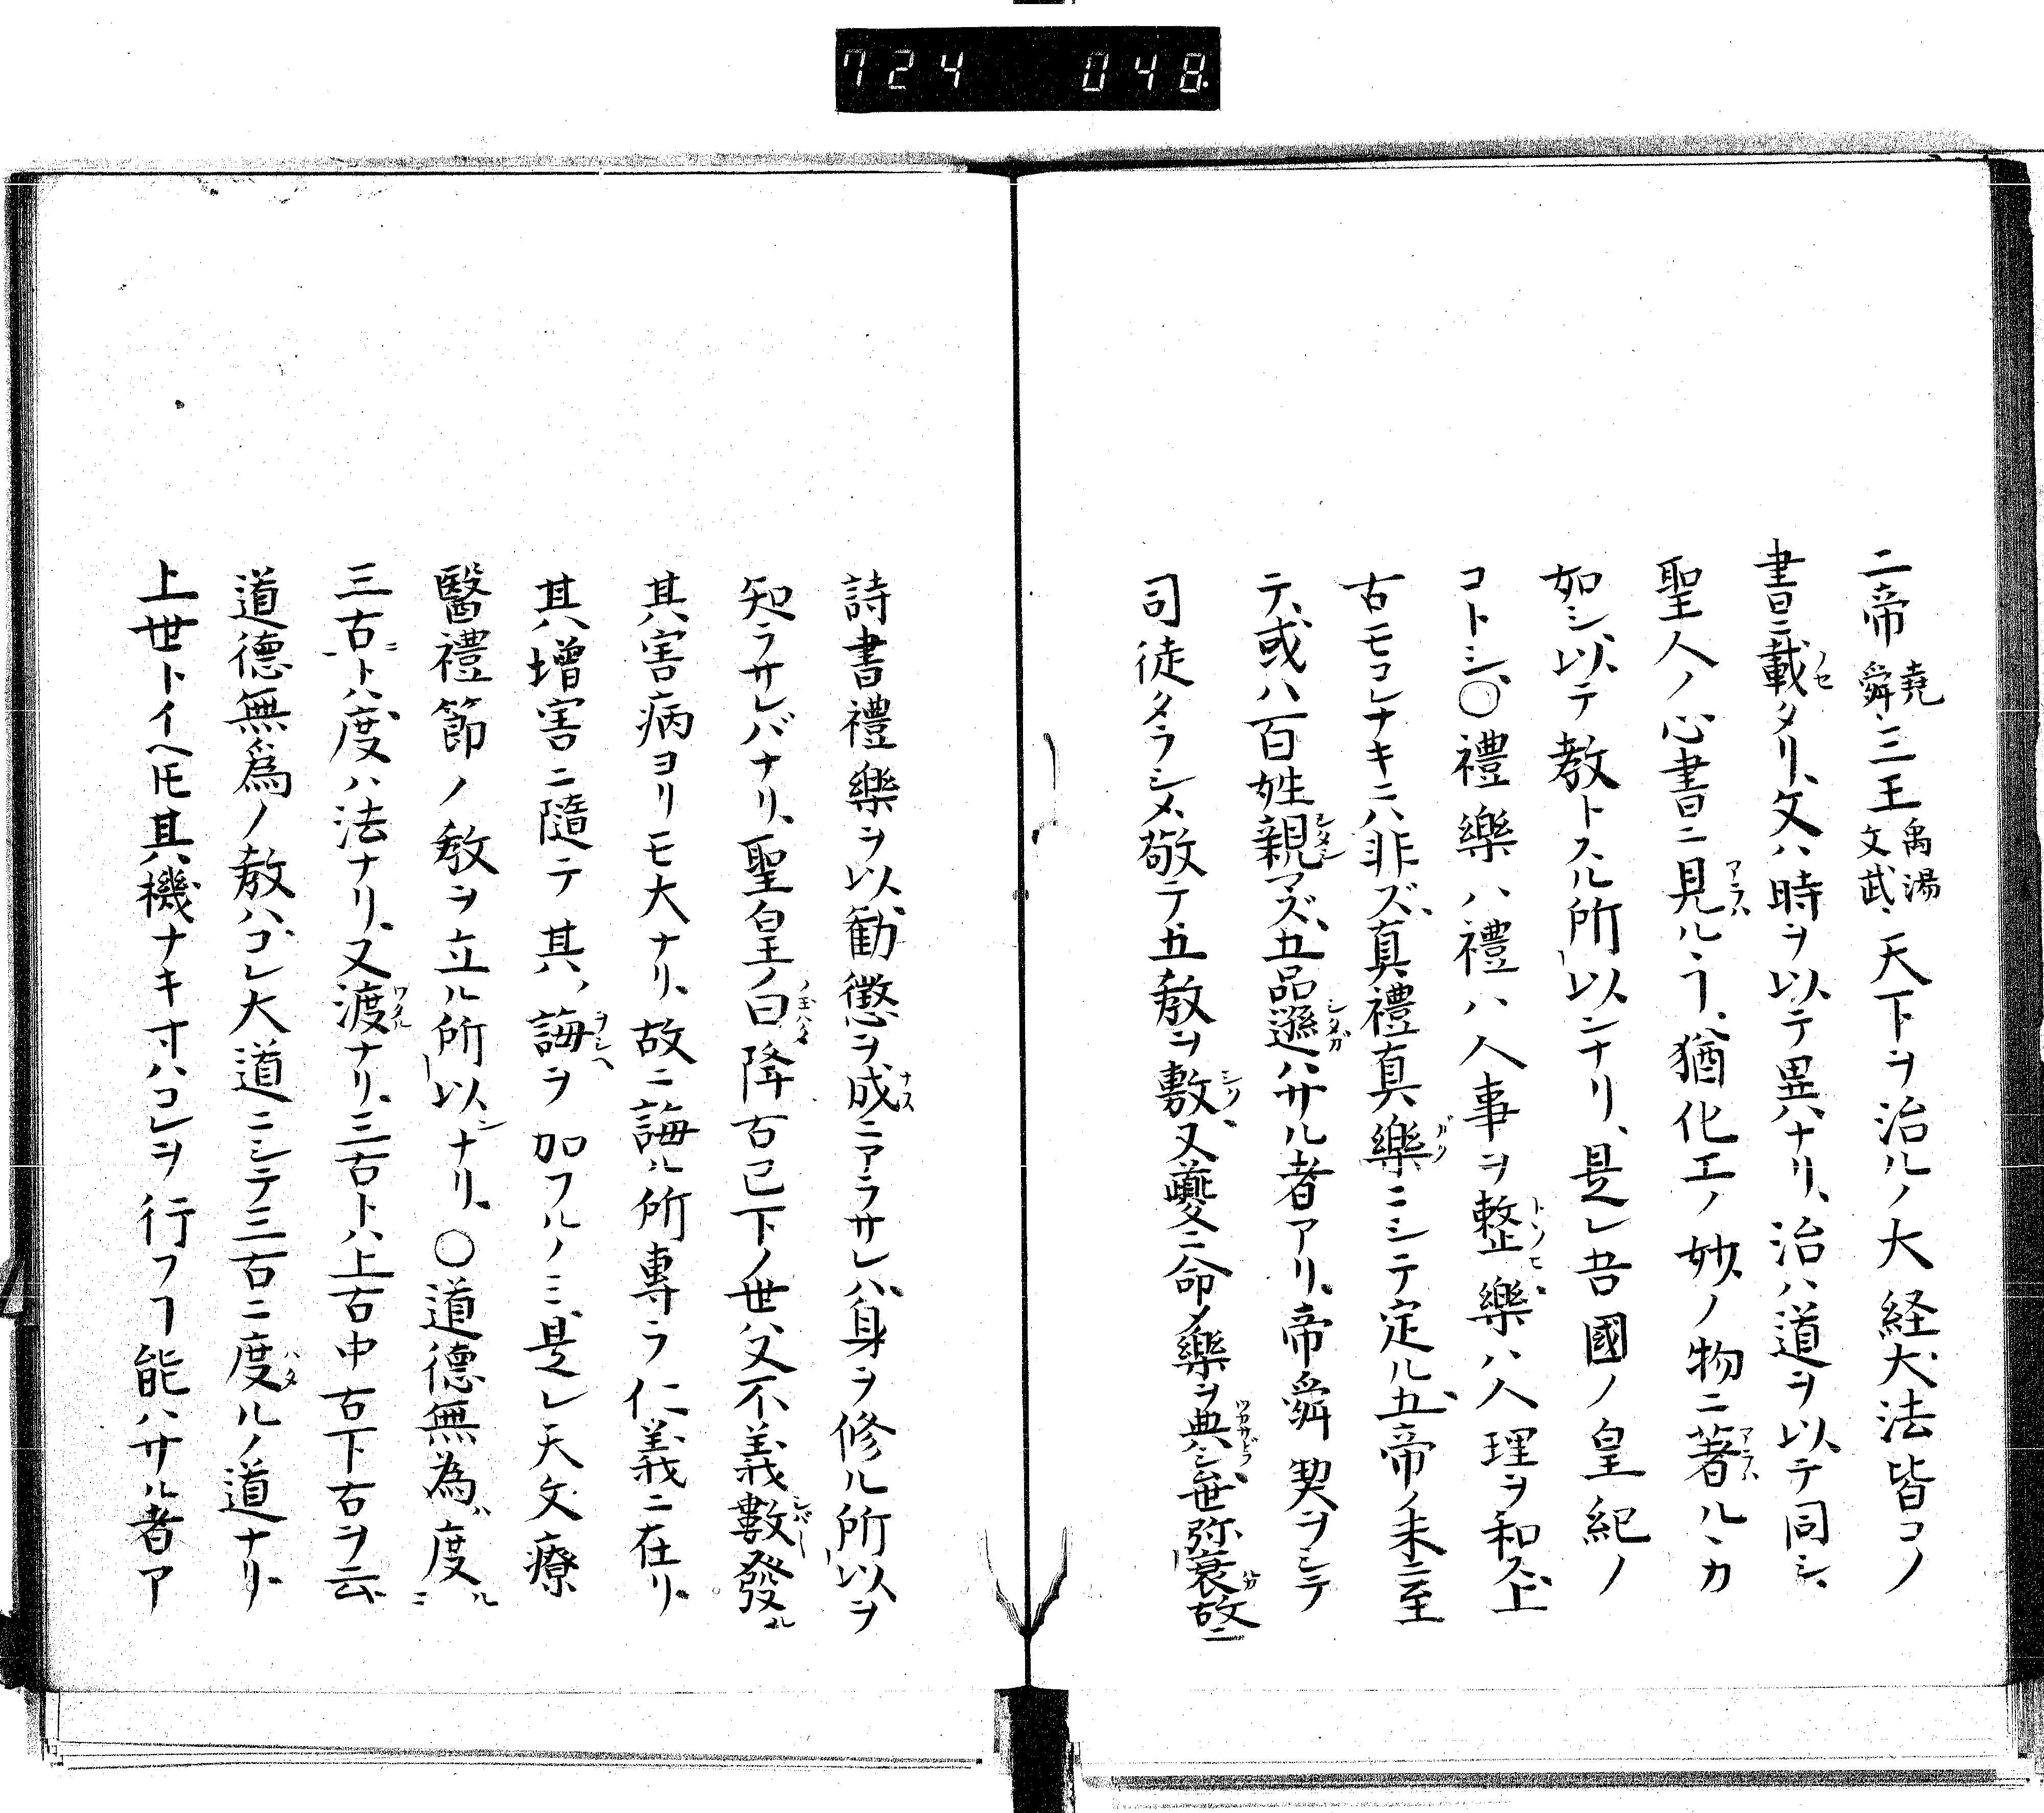 724 048
二帝堯舜三王禹湯文武、天下ヲ治ルノ大経大法皆コノ
書ニ載タリ、文ハ時ヲ以テ異ナリ、治ハ道ヲ以テ同シ、
聖人ノ心書ニ見ルヿ、猶化工ノ妙ノ物ニ著ルヽカ
如シ以テ教トスル所以ナリ、是レ吾國ノ皇紀ノ
コトシ、〇禮樂ハ禮ハ人事ヲ整樂ハ人理ヲ和ス上
古モコレナキニハ非ズ、真禮真樂ニシテ定ル五帝ノ末ニ至
テ、或ハ百姓親マズ、五品遜ハサル者アリ、帝舜契ヲシテ
司徒タラシメ、敬テ五教ヲ敷、又夔ニ命メ樂ヲ典シ世弥衰故ニ
詩書禮樂ヲ以勸懲ヲ成ニアラサレハ、身ヲ修ル所以ヲ
知ラサレバナリ、聖皇ノ曰降古已下ノ世ハ父不義數發ル
其害病ヨリモ大ナリ、故ニ誨ル所專ラ仁義ニ在リ、
其增害ニ隨テ其、誨ヲ加フルノミ、是レ天文療
醫禮節ノ教ヲ立ル所以ナリ、〇道德無為度ルニ
三古ニトハ、度ハ法ナリ、又渡ナリ、三古トハ上古中古下古ヲ云、
道德無爲ノ教ハ、コレ大道ニシテ三古ニ度ルノ道ナリ、
上世トイヘ𪜈其機ナキ寸ハコレヲ行フヿ能ハサル者ア